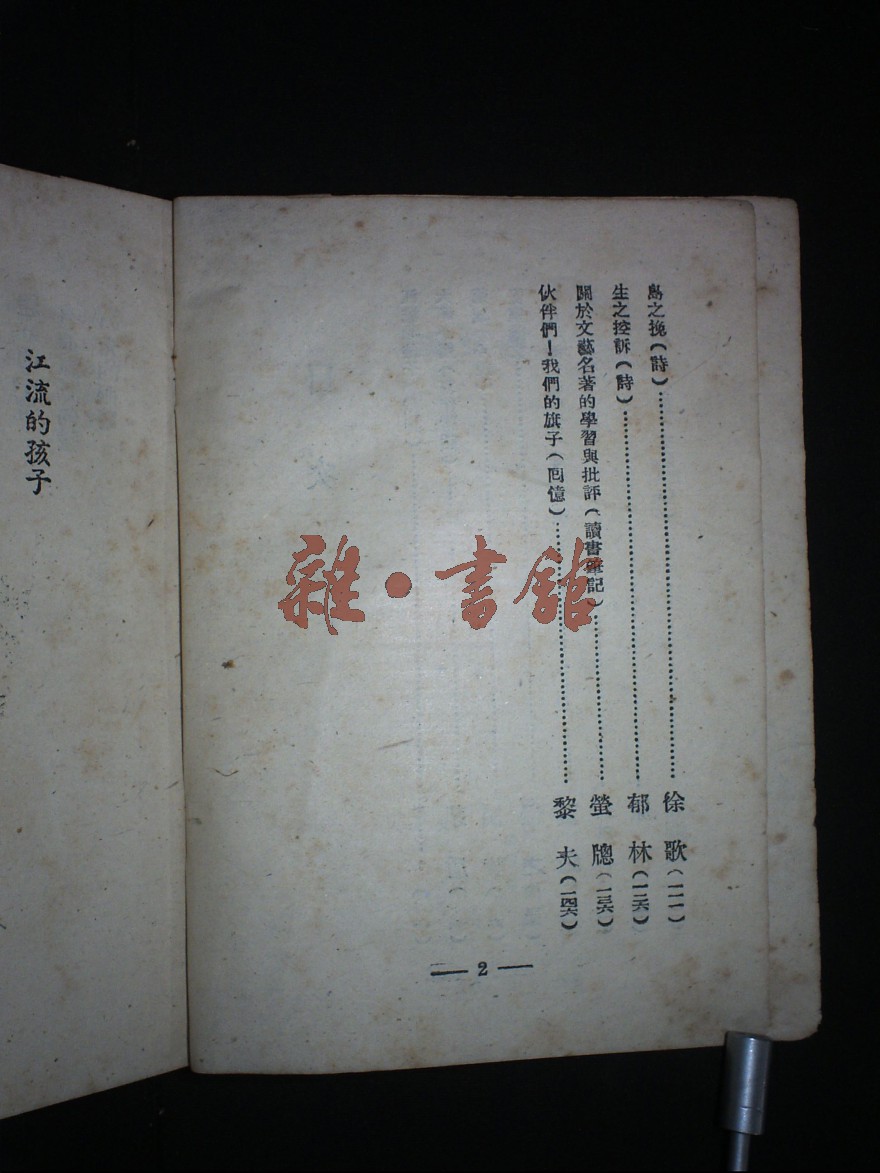 島之挽(詩)…………徐歌(一一一)
生之控訴(詩)…………郁林(一二六)
關於文藝名著的學習與批評(讀書筆記)…………螢牕(一三六)
伙伴們!我們的旗子(回憶)…………黎夫(一四六)
— 2 —
江流的孩子
雜·書館